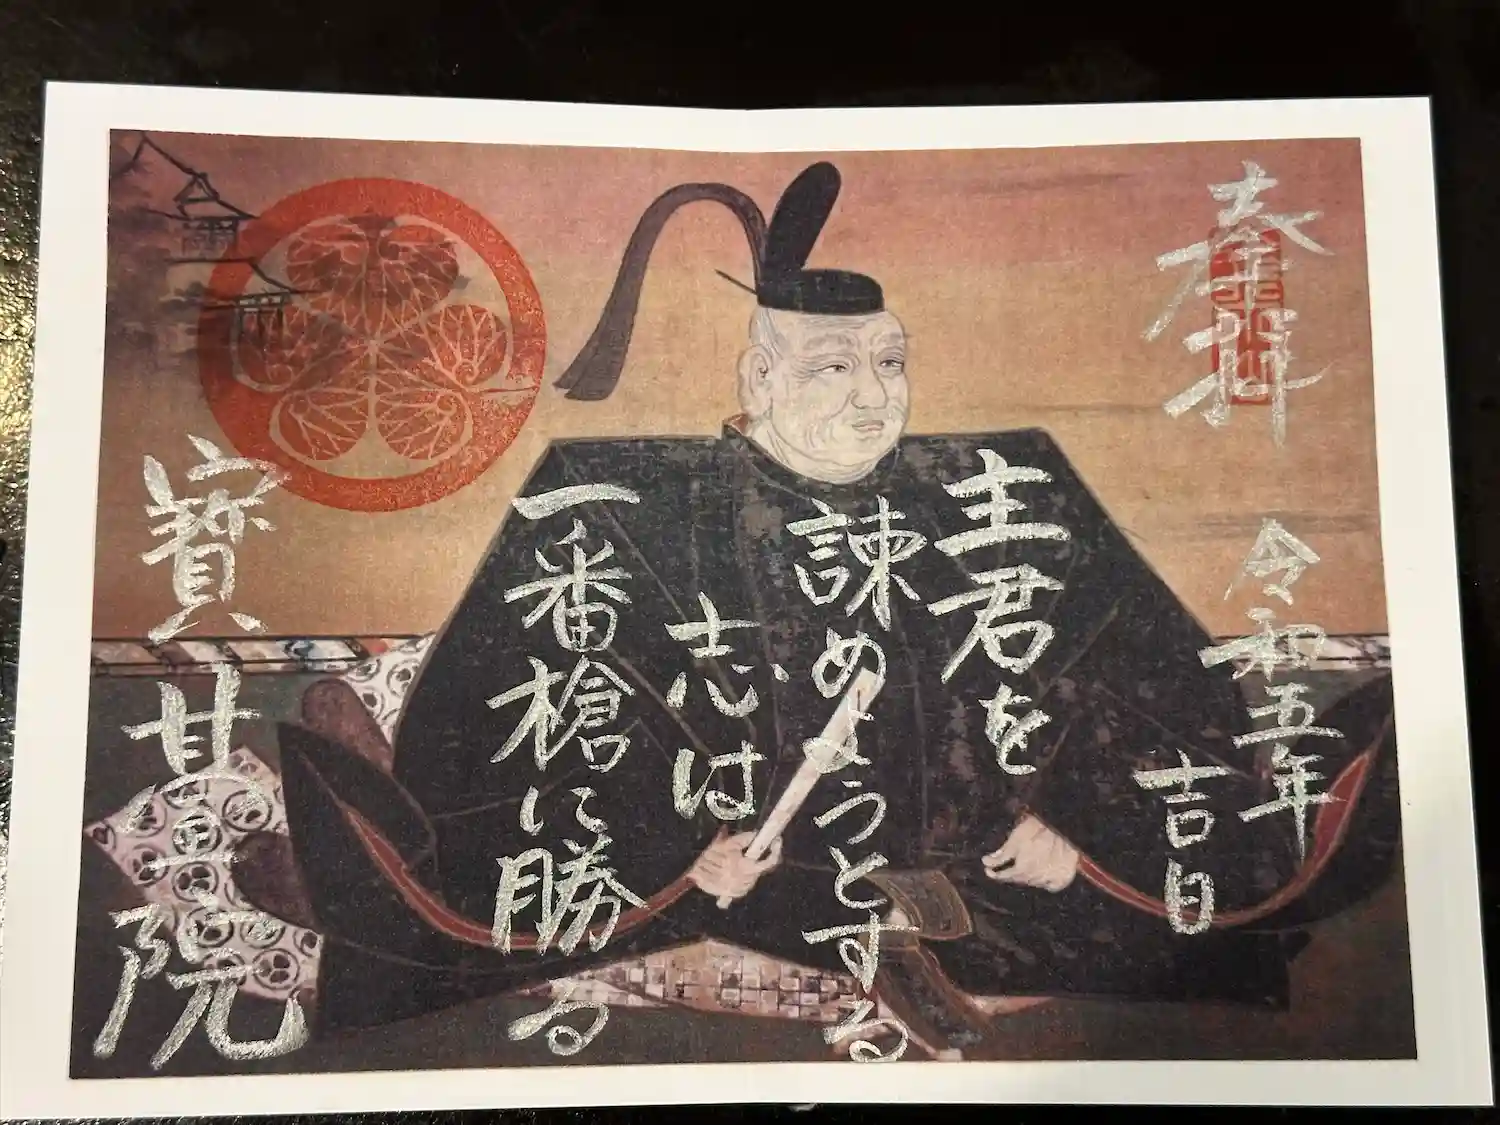 奉拝
令和五年
吉日
主君を
諫めようとする
志は
一番槍に勝る
寳基院